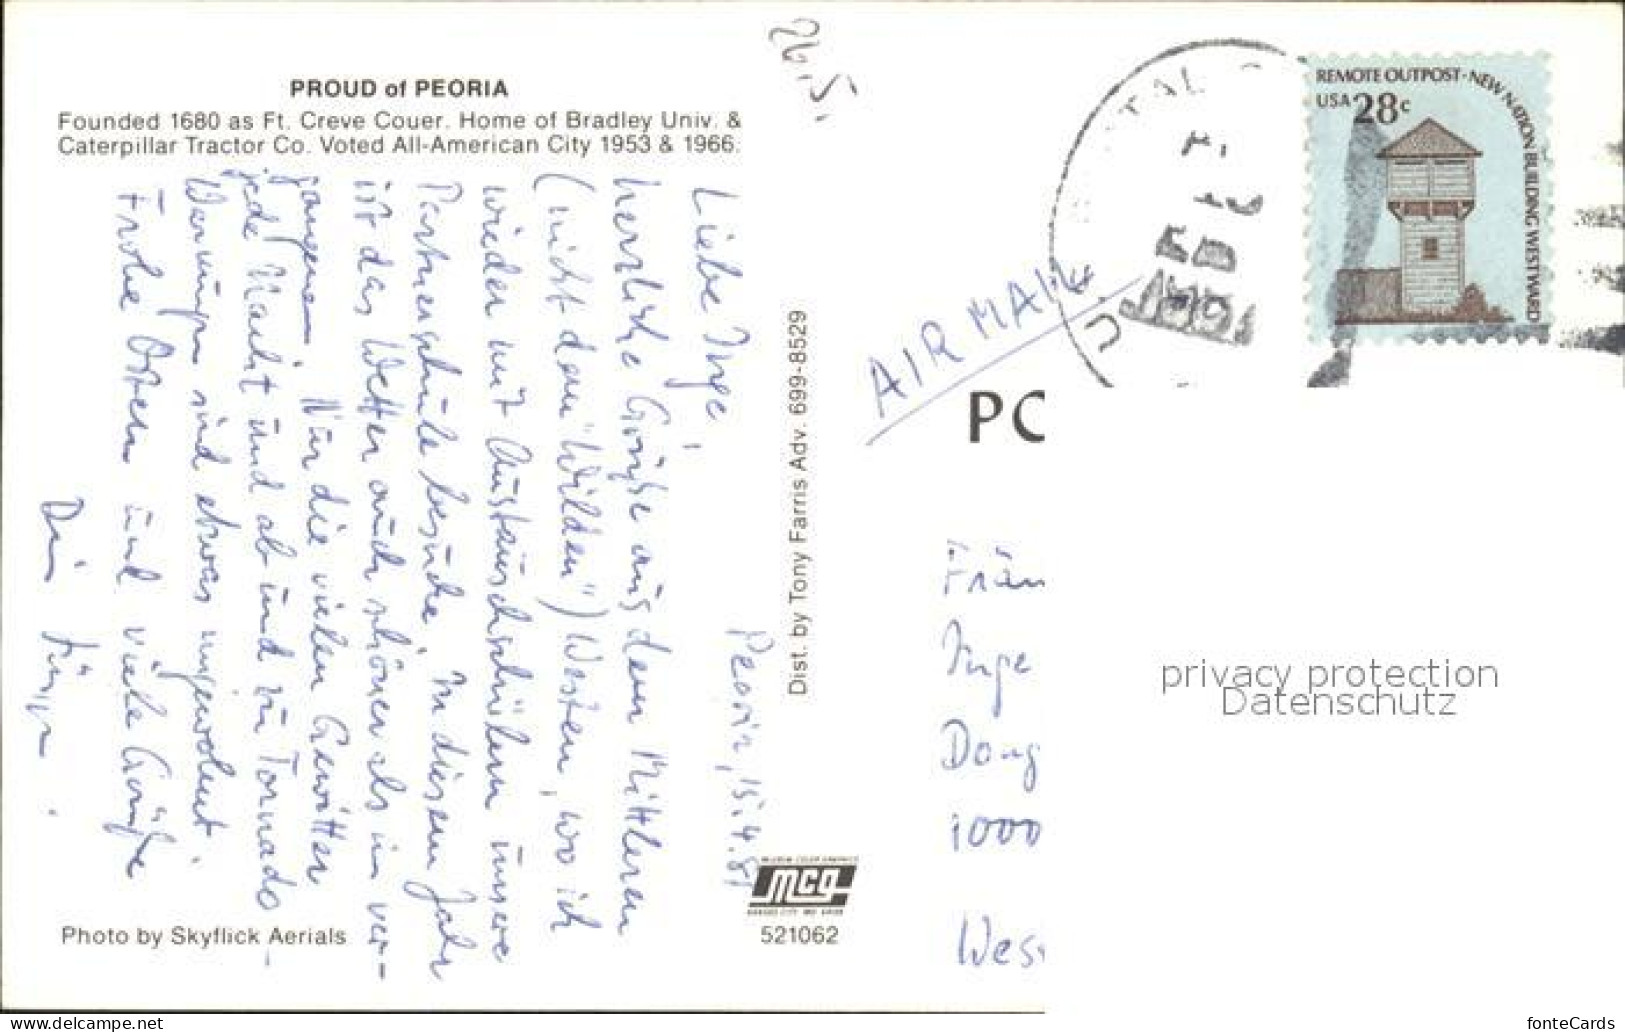 PROUD of PEORIA
Founded 1680 as Ft. Creve Couer. Home of Bradley Univ. &
Caterpillar Tractor Co. Voted All-American City 1953 & 1966.
26.5.
Peoria, 15.4.81
Liebe Inge,
herzliche Grüße aus dem Mittleren
(nicht dem "Wilden") Westen, wo ich
wieder mit Austauschschülern unsere
Partnerschule besuche. In diesem Jahr
ist das Wetter auch schöner als im ver-
gangenen. Nur die vielen Gewitter
jede Nacht und ab und zu Tornado-
Warnungen sind etwas ungewohnt.
Frohe Ostern und viele Grüße
Dein Jürgen.
Photo by Skyflick Aerials
Dist. by Tony Farris Adv. 699-8529
mcg
521062
AIR MAIL
REMOTE OUTPOST · NEW NATION BUILDING WESTWARD
USA 28c
PC
Inge
1000
privacy protection
Datenschutz
www.delcampe.net
fonteCards